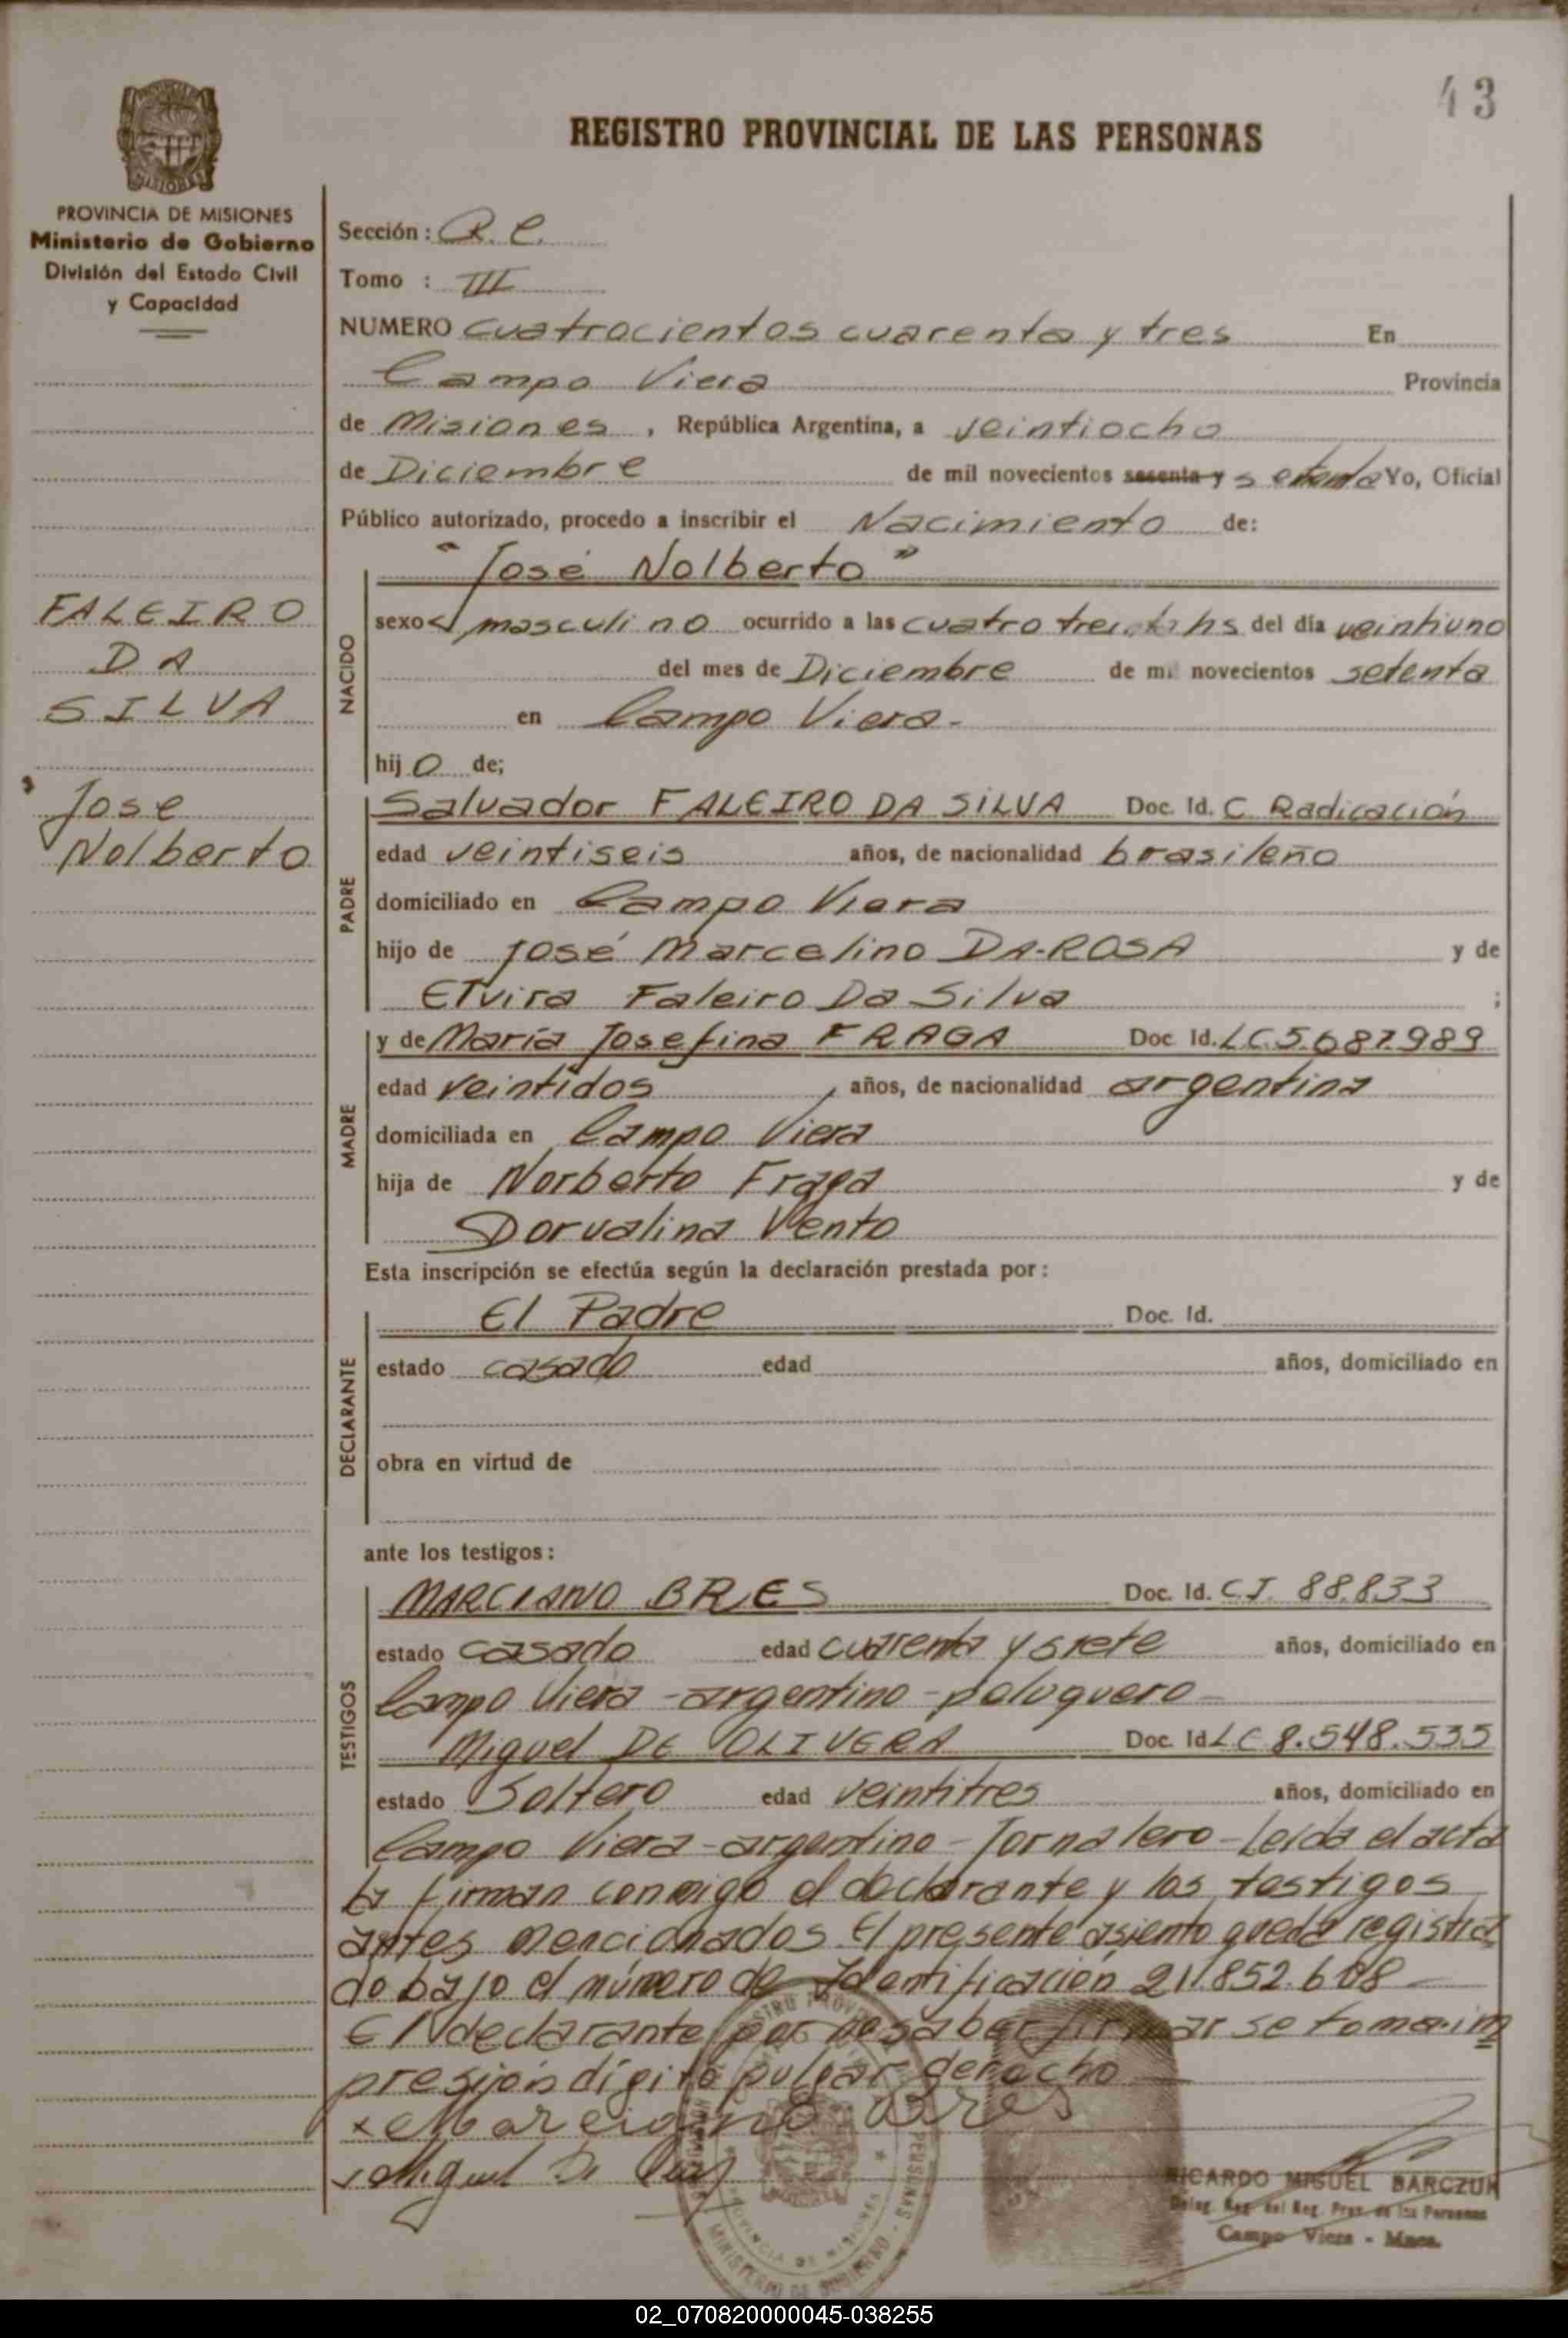 43
REGISTRO PROVINCIAL DE LAS PERSONAS
MISIONES
PROVINCIA DE MISIONES
Ministerio de Gobierno
División del Estado Civil
y Capacidad
FALEIRO
DA
SILVA
Jose
Nolberto
Sección: R. C.
Tomo : III
NUMERO cuatrocientos cuarenta y tres En
Campo Viera Provincia
de Misiones, República Argentina, a veintiocho
de Diciembre de mil novecientos sesenta y setenta Yo, Oficial
Público autorizado, procedo a inscribir el Nacimiento de:
"José Nolberto"
NACIDO
sexo masculino ocurrido a las cuatro treinta hs del día veintiuno
del mes de Diciembre de mil novecientos setenta
en Campo Viera-
hijo de;
PADRE
Salvador FALEIRO DA SILVA Doc. Id. C. Radicación
edad veintiseis años, de nacionalidad brasileño
domiciliado en Campo Viera
hijo de José Marcelino DA-ROSA y de
Elvira Faleiro Da Silva ;
MADRE
y de María Josefina FRAGA Doc. Id. LC.5.687.989
edad veintidos, años, de nacionalidad argentina
domiciliada en Campo Viera
hija de Norberto Fraga y de
Dorvalina Vento
Esta inscripción se efectúa según la declaración prestada por:
DECLARANTE
El Padre Doc. Id.
estado casado edad años, domiciliado en
obra en virtud de
ante los testigos:
TESTIGOS
MARCIANO BRES Doc. Id. C.I. 88.833
estado casado edad cuarenta y siete años, domiciliado en
Campo Viera - argentino - peluquero -
Miguel DE OLIVERA Doc. Id. LE 8.548.535
estado Soltero edad veintitres años, domiciliado en
Campo Viera - argentino - Jornalero - Leída el acta
la firman conmigo el declarante y los testigos
antes mencionados. El presente asiento queda registra
do bajo el número de Identificación 21.852.608 -
El declarante por no saber firmar se toma im
presión dígito pulgar derecho
x Marciano Bres
x Miguel D
RICARDO MIGUEL BARCZUK
Deleg. Reg. del Reg. Prov. de las Personas
Campo Viera - Mnes.
PROVINCIA DE MISIONES
MINISTERIO DE GOBIERNO
02_070820000045-038255